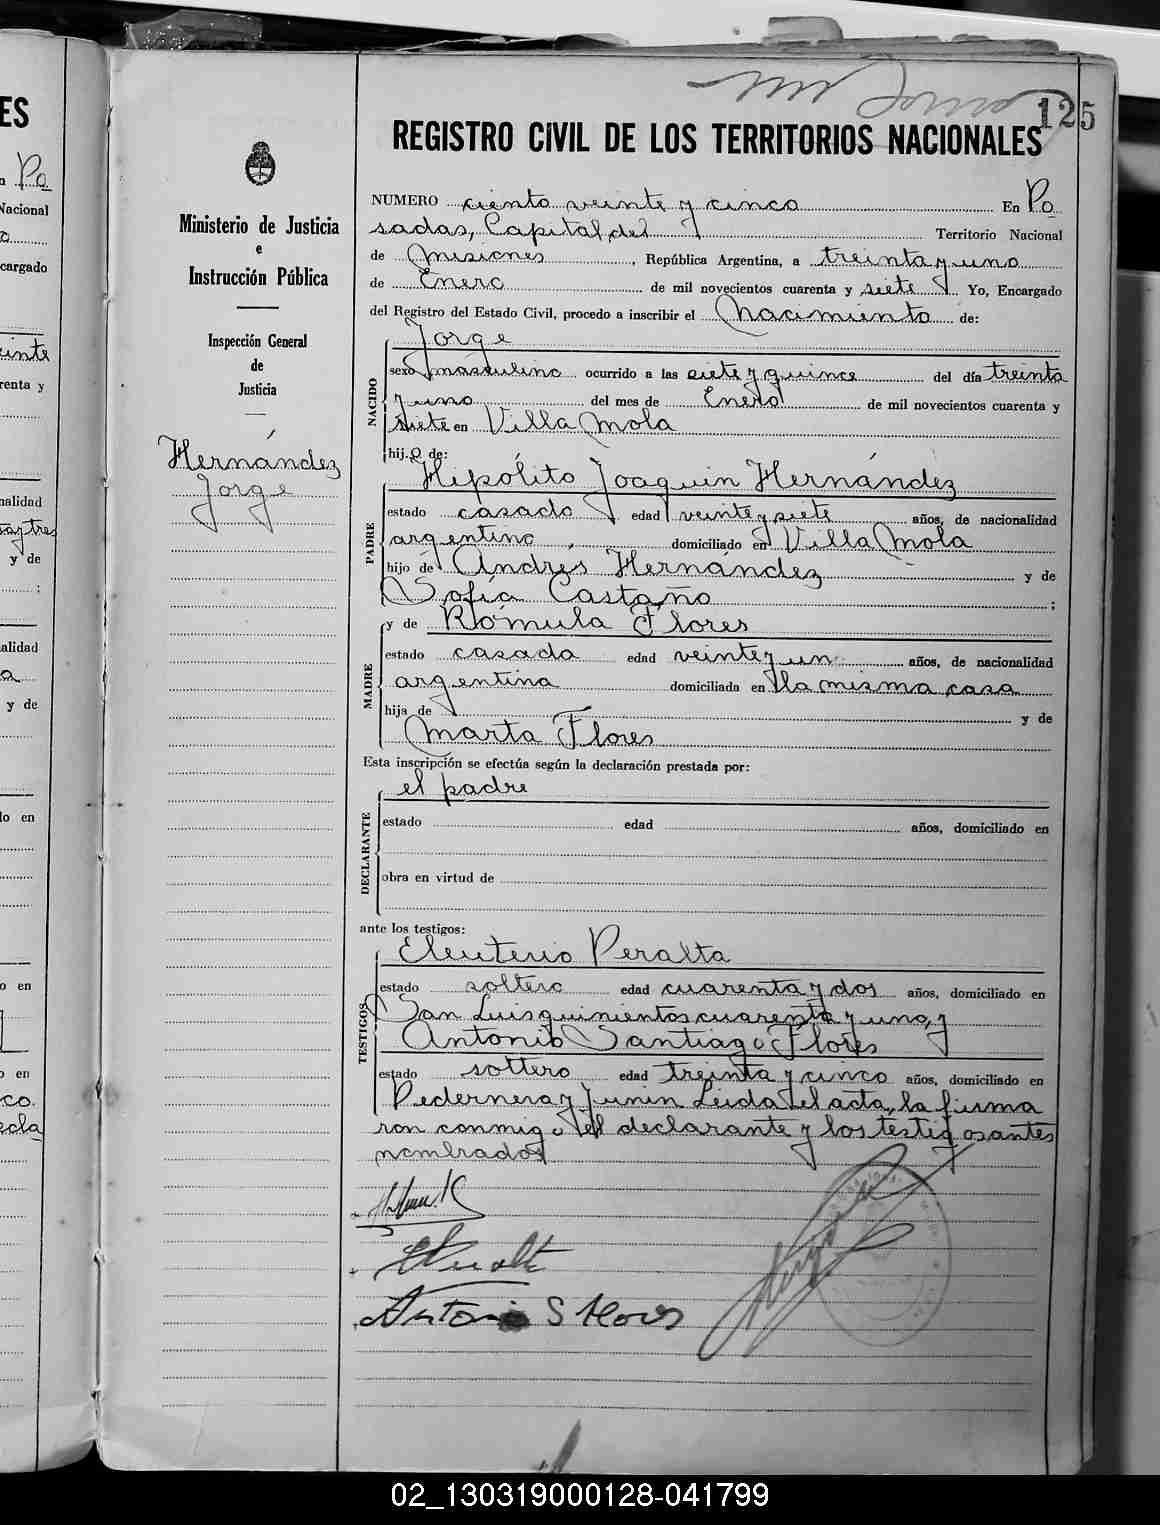 125
REGISTRO CIVIL DE LOS TERRITORIOS NACIONALES
Ministerio de Justicia
e
Instrucción Pública
Inspección General
de
Justicia
Hernández
Jorge
NUMERO ciento veinte y cinco En Po
sadas, Capital del Territorio Nacional
de Misiones, República Argentina, a treinta y uno
de Enero de mil novecientos cuarenta y siete Yo, Encargado
del Registro del Estado Civil, procedo a inscribir el Nacimiento de:
NACIDO
Jorge
sexo masculino ocurrido a las siete y quince del día treinta
y uno del mes de Enero de mil novecientos cuarenta y
siete en Villa Mola
hijo de:
PADRE
Hipólito Joaquin Hernández
estado casado edad veinte y siete años, de nacionalidad
argentino domiciliado en Villa Mola
hijo de Andrés Hernández y de
Sofía Castaño ;
MADRE
y de Rómula Flores
estado casada edad veinte y un años, de nacionalidad
argentina domiciliada en la misma casa
hija de y de
Marta Flores
Esta inscripción se efectúa según la declaración prestada por:
DECLARANTE
el padre
estado edad años, domiciliado en
obra en virtud de
ante los testigos:
TESTIGOS
Eleuterio Peralta
estado soltero edad cuarenta y dos años, domiciliado en
San Luis quinientos cuarenta y uno, y
Antonio Santiago Flores
estado soltero edad treinta y cinco años, domiciliado en
Pedernera y Junin Leida el acta, la firma
ron conmigo el declarante y los testigos antes
nombrados
Antonio S Flores
ES
Po
Nacional
cargado
renta y
nalidad
y de
;
alidad
y de
do en
o en
o en
02_130319000128-041799